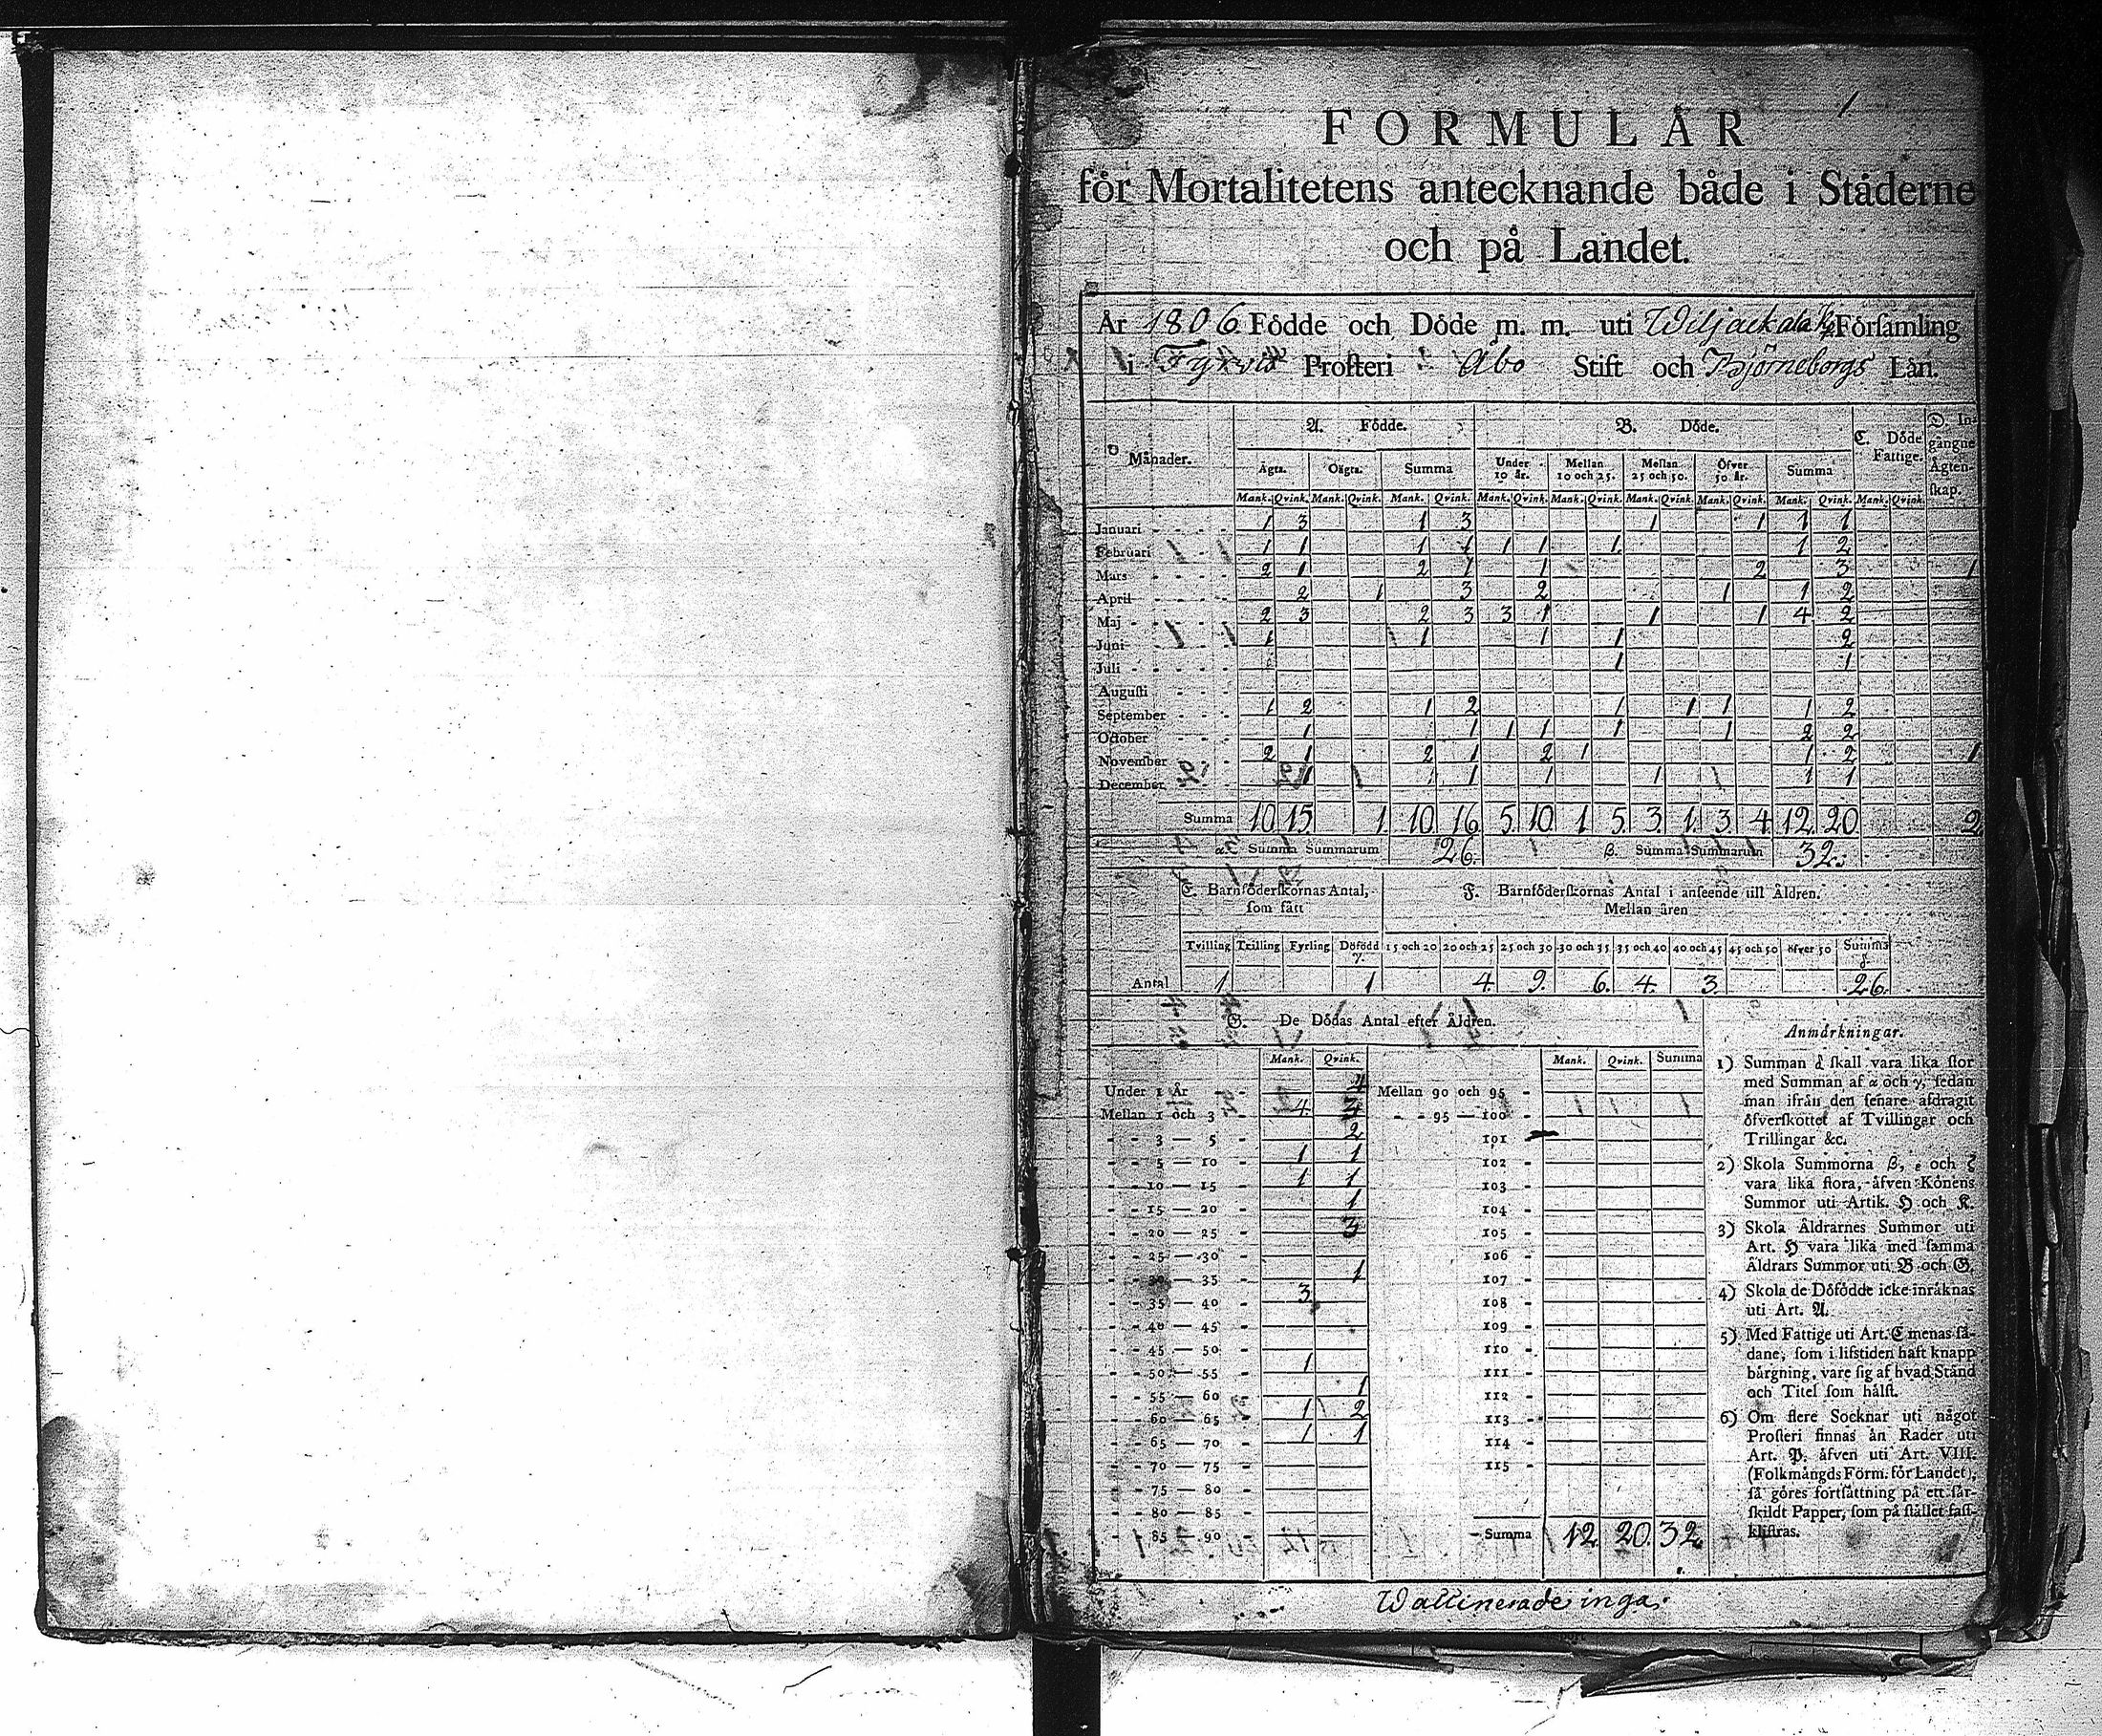 FORMULÅR
för Mortalitetens antecknande både i Städerne
och på Landet.
År 1806 Födde och Döde m. m. uti Wiljackala Församling
i Tyrvis Prosteri Åbo Stift och Björneborgs Län.
Månader. A. Födde. B. Döde. C. Döde Fattige. D. Ingångne Ägtenskap.
Ägta. Oägta. Summa Under 10 år. Mellan 10 och 25. Mellan 25 och 50. Öfver 50 år. Summa
Mank. Qvink. Mank. Qvink. Mank. Qvink. Mank. Qvink. Mank. Qvink. Mank. Qvink. Mank. Qvink. Mank. Qvink. Mank. Qvink.
Januari 1 3 1 3 1 1 1 1
Februari 1 1 1 1 1 1 1 1 2
Mars 2 1 2 1 1 2 3 1
April 2 1 3 2 1 1 2
Maj 2 3 2 3 3 1 1 1 4 2
Juni 1 1 1 1 2
Juli 1 1
Augusti
September 1 2 1 2 1 1 1 1 2
October 1 1 1 1 1 1 2 2
November 2 1 2 1 2 1 1 2 1
December 1 1 1 1 1 1
Summa 10 15 1 10 16 5 10 1 5 3 1 3 4 12 20 2
α. Summa Summarum 26. β. Summa Summarum 32.
E. Barnföderskornas Antal, som fått
F. Barnföderskornas Antal i anseende till Åldren.
Mellan åren
Tvilling Trilling Fyrling Döfödd γ. 15 och 20 20 och 25 25 och 30 30 och 35 35 och 40 40 och 45 45 och 50 öfver 50 Summa δ.
Antal 1 1 4. 9. 6. 4. 3. 26.
G. De Dödas Antal efter Åldren.
Mank. Qvink. Mank. Qvink. Summa
Under 1 År 4 Mellan 90 och 95
Mellan 1 och 3 4 95 — 100
3 — 5 2 101
5 — 10 1 1 102
10 — 15 1 1 103
15 — 20 1 104
20 — 25 3 105
25 — 30 106
30 — 35 1 107
35 — 40 3 108
40 — 45 109
45 — 50 110
50 — 55 1 111
55 — 60 1 112
60 — 65 1 2 113
65 — 70 1 1 114
70 — 75 115
75 — 80
80 — 85
85 — 90 Summa 12 20 32
Anmärkningar.
1) Summan δ skall vara lika stor
med Summan af α och γ, sedan
man ifrån den senare afdragit
öfverskottet af Tvillingar och
Trillingar &c.
2) Skola Summorna β, ε och ζ
vara lika stora, äfven Könens
Summor uti Artik. H och K.
3) Skola Åldrarnes Summor uti
Art. H vara lika med samma
Åldrars Summor uti B och G.
4) Skola de Döfödde icke inräknas
uti Art. A.
5) Med Fattige uti Art. C menas så-
dane, som i lifstiden haft knapp
bärgning, vare sig af hvad Stånd
och Titel som hälst.
6) Om flere Socknar uti något
Prosteri finnas än Rader uti
Art. P. äfven uti Art. VIII.
(Folkmängds Form. för Landet),
så göres fortsättning på ett sär-
skildt Papper, som på stället fast-
klistras.
Waccinerade inga.